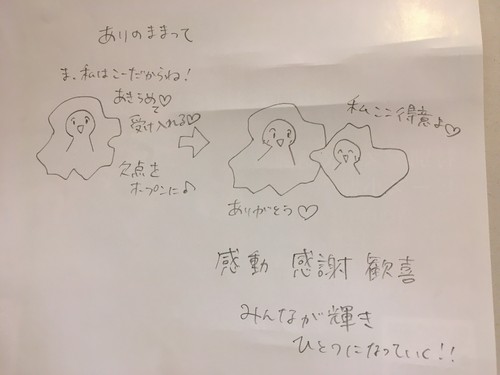 ありのままって
ま、私はこーだからね!
あきらめて♡
受け入れる♡
欠点を
オープンに♪
私ここ得意よ♡
ありがとう♡
感動 感謝 歓喜
みんなが輝き
ひとつになっていく!!